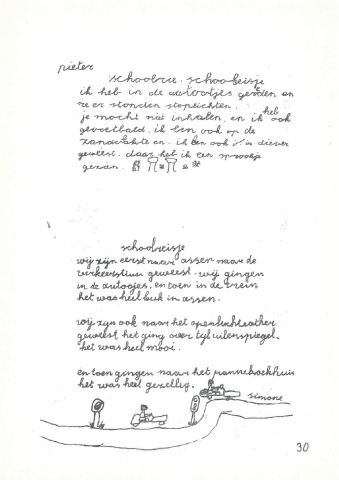 pieter
schoolrei. schoolreisje
ik heb in de autootjes gereden en
er stonden stoplichten.
je mocht niet inhalen. en ik heb ook
gevoetbald. ik ben ook op de
zandvlakte en. ik ben ook in diever
geweest. daar heb ik een sprookje
gezien.
schoolreisje
wij zijn eerst naar assen naar de
verkeerstuin geweest. wij gingen
in de autoojes, en toen in de trein
het was heel leuk in assen.
wij zijn ook naar het openluchteather
geweest, het ging over tijl uilenspiegel.
het was heel mooi.
en toen gingen naar het pannekoekhuis
het was heel gezellig.
simone
30